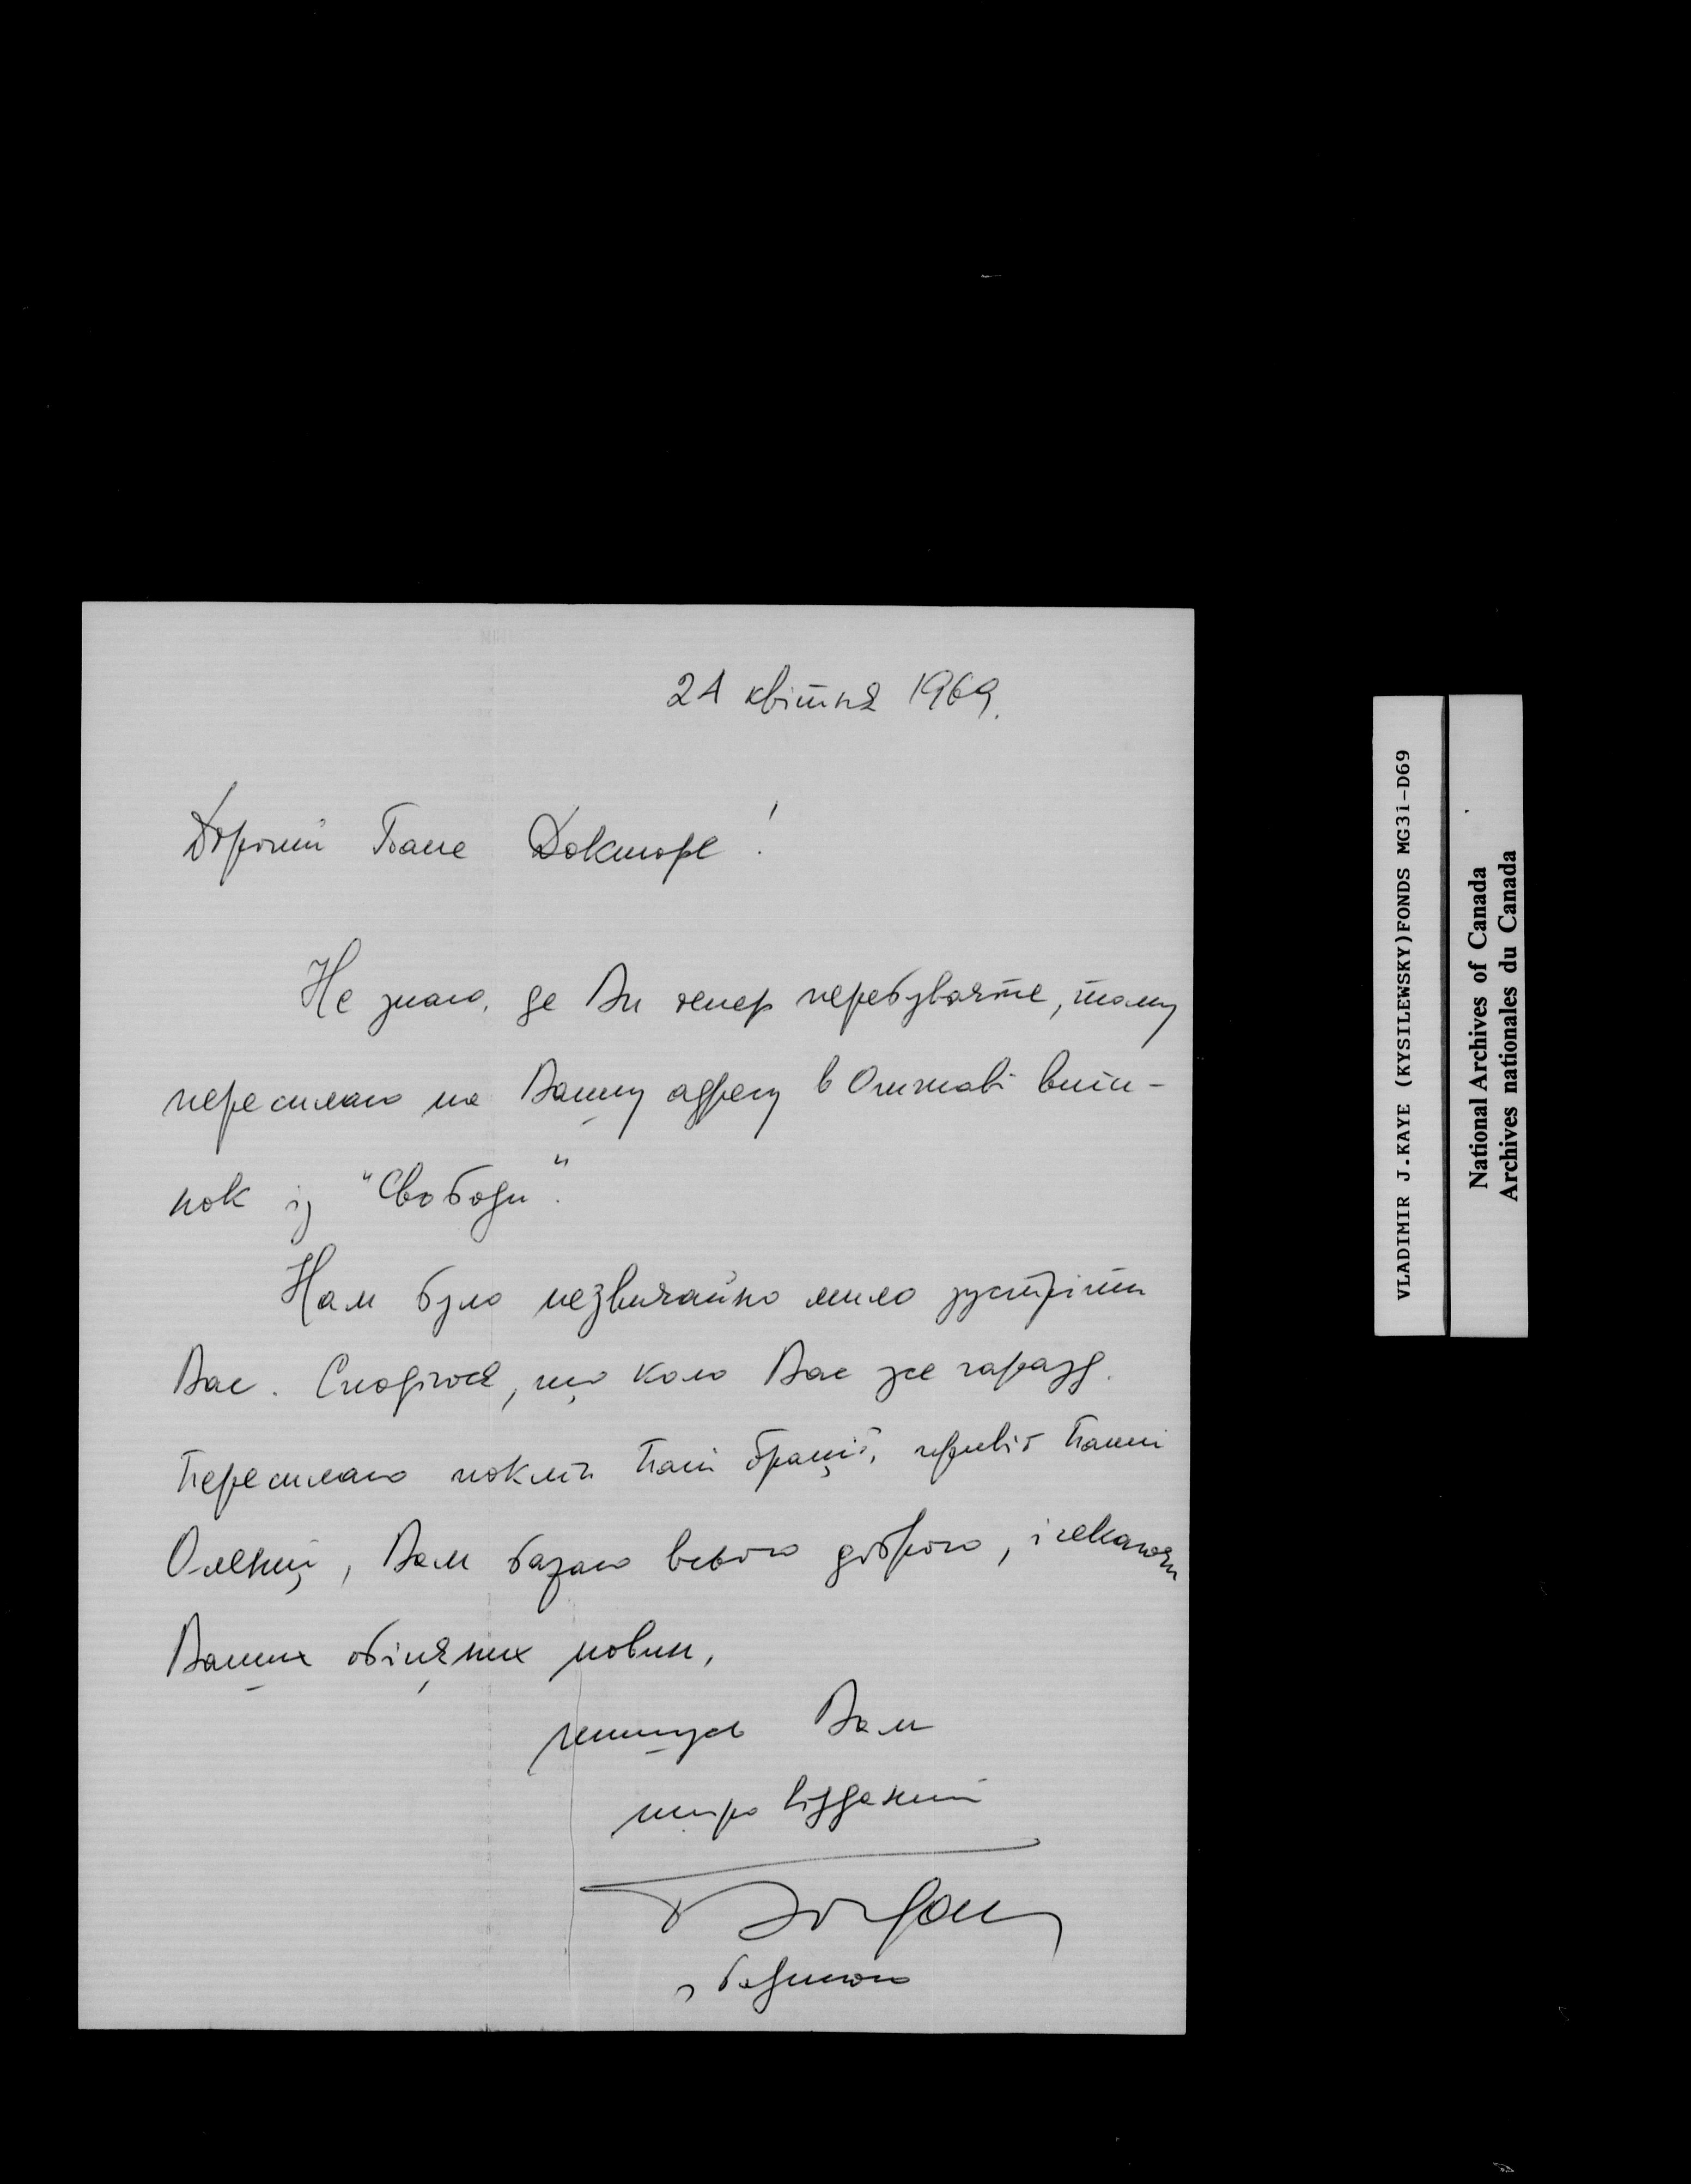 24 квітня 1969.
Дорогий Пане Докторе!
Не знаю, де Ви тепер перебуваєте, тому
пересилаю на Вашу адресу в Оттаві витинок
із "Свободи".
Нам було незвичайно мило зустріти
Вас. Сподіюся, що коло Вас усе гаразд.
Пересилаю поклін Пані Грації, привіт Панні
Оленці, Вам бажаю всього доброго, і чекаючи
Ваших обіцяних новин,
пишусь Вам
щиро відданий
Богдан
з родиною
VLADIMIR J.KAYE (KYSILEWSKY)FONDS MG31-D69
National Archives of Canada
Archives nationales du Canada